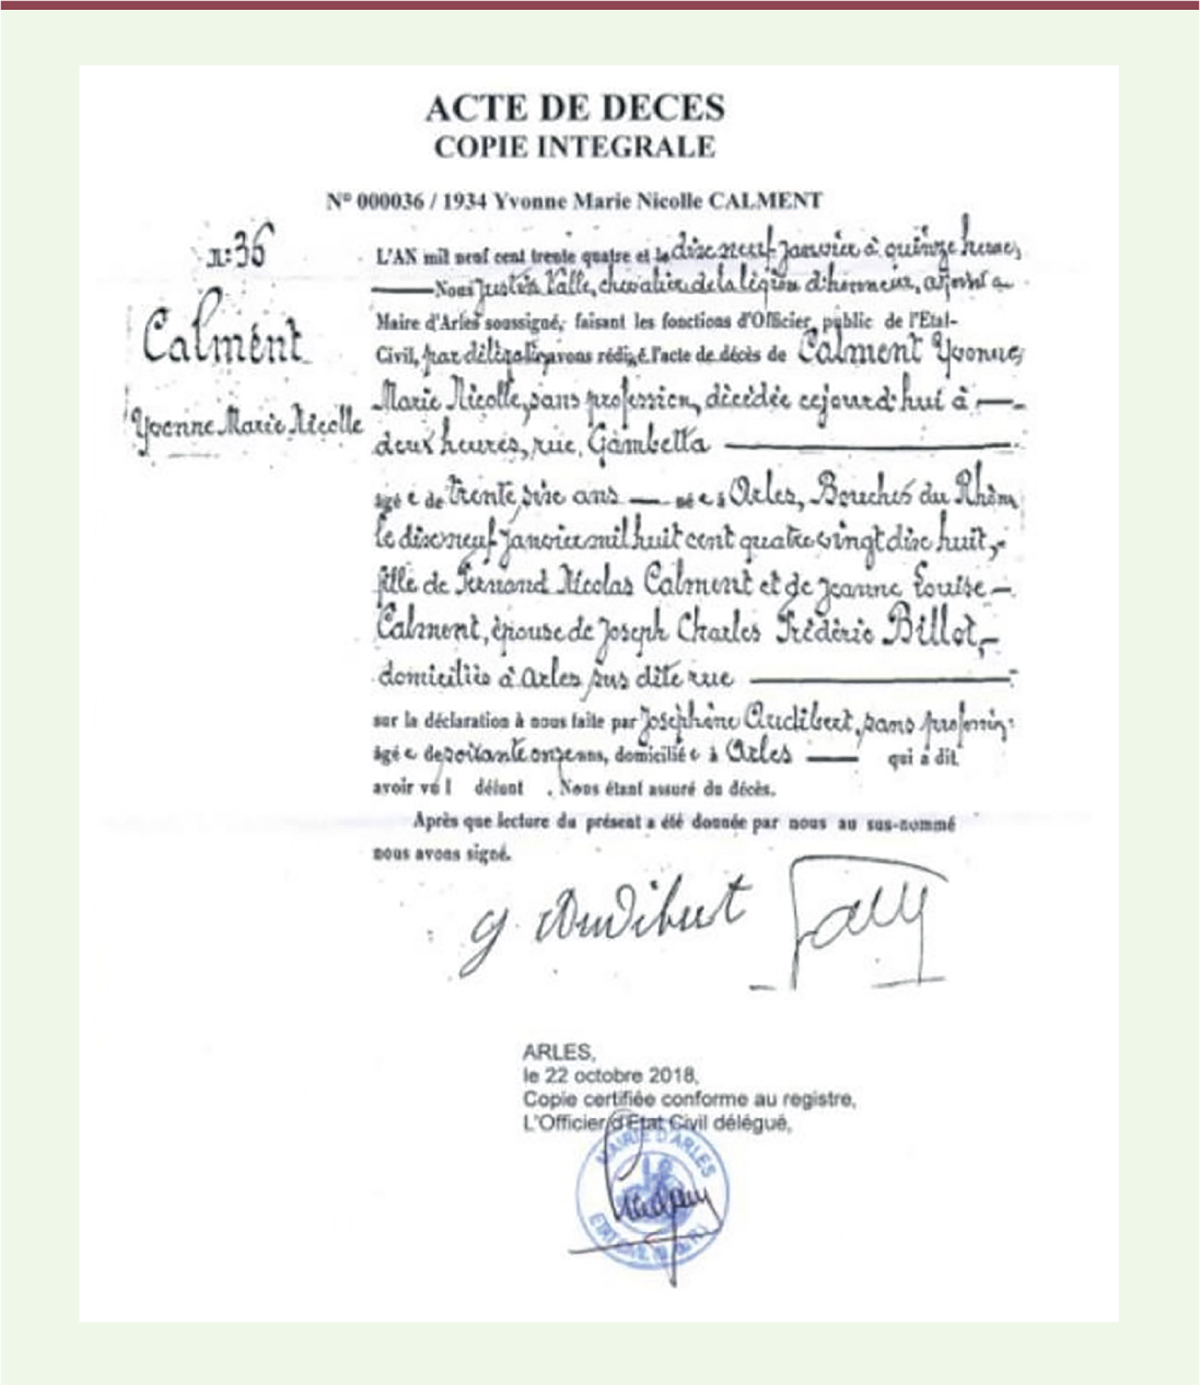 ACTE DE DECES
COPIE INTEGRALE
N° 000036 / 1934 Yvonne Marie Nicolle CALMENT
n: 36
Calment
Yvonne Marie Nicolle
L'AN mil neuf cent trente quatre et le dix neuf janvier à quinze heures
Nous Justin Valle, chevalier de la légion d'honneur, adjoint au
Maire d'Arles soussigné, faisant les fonctions d'Officier public de l'Etat-
Civil, par délégation avons rédigé l'acte de décès de Calment Yvonne
Marie Nicolle, sans profession, décédée cejourd'hui à
deux heures, rue, Gambetta
âgée de trente six ans née à Arles, Bouches du Rhône
le dix neuf janvier mil huit cent quatre vingt dix huit,
fille de Fernand Nicolas Calment et de Jeanne Louise
Calment, épouse de Joseph Charles Frédéric Billot,
domiciliés à Arles sus dite rue
sur la déclaration à nous faite par Joséphine Audibert, sans profession
âgée de soixante onze ans, domiciliée à Arles qui a dit
avoir vu l défunt . Nous étant assuré du décès.
Après que lecture du présent a été donnée par nous au sus-nommé
nous avons signé.
J. Audibert
ARLES,
le 22 octobre 2018,
Copie certifiée conforme au registre,
L'Officier d'Etat Civil délégué,
MAIRIE D'ARLES
ETAT CIVIL